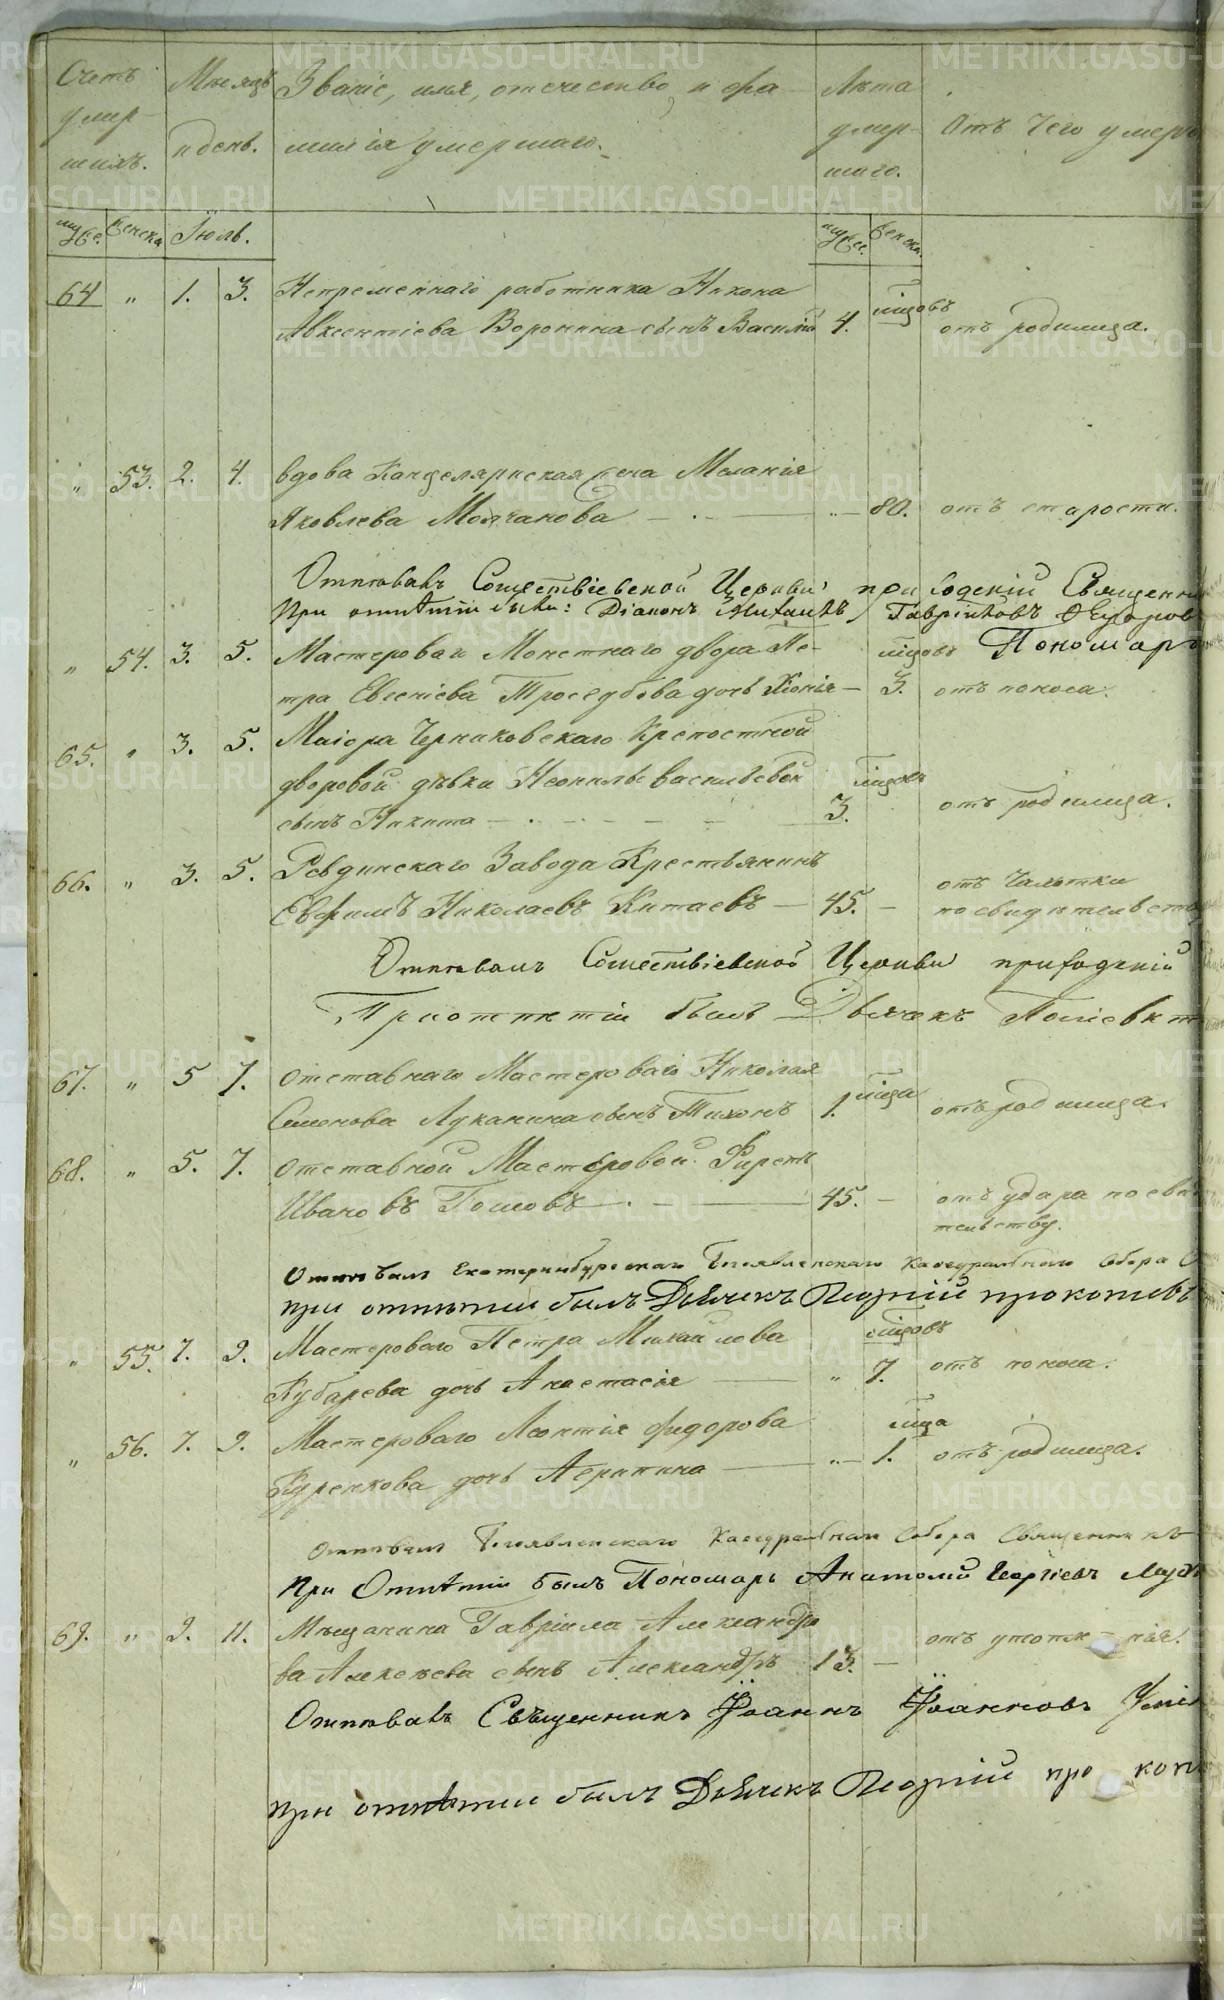 Счетъ умер-шихъ. Мѣсяцъ и день. Званіе, имя, отчество, и фа-милія умершаго. Лѣта умер-шаго. Отъ чего умеръ
муж. женска Іюль. муж. женска.
64 " 1. 3. Непременнаго работника Никона
Авксентіева Воронина сынъ Василій 4. мцовъ отъ родимца.
" 53. 2. 4. вдова Канцеляриская жена Меланія
Яковлева Молчанова — " — 80. отъ старости.
Отпѣвалъ Сошествіевской Церкви приходскій Священни
При отпѣтіи были: Діаконъ Гаврииловъ
" 54. 3. 5. Мастероваго Монетнаго двора Пе- мцовъ Пономарь
тра Евгеніева дочь — 3. отъ поноса.
65. " 3. 5. Маіора Черниковскаго Крепостной
дворовой дѣвки Неонилы Васильевой мцовъ
сынъ Никита — 3. отъ родимца.
66. " 3. 5. Ревдинскаго Завода Крестьянинъ отъ чахотки
Евфимъ Николаевъ Китаевъ — 45. — по свидѣтельству
Отпѣвалъ Сошествіевской Церкви приходскій
При отпѣтіи былъ Дьячекъ Поліевкт
67. " 5 7. Отставнаго Мастероваго Николая
Семенова Луканина сынъ Тихонъ 1. мца отъ родимца.
68. " 5. 7. Отставной Мастеровой Фирсъ
Ивановъ — 45. — отъ удара по свидѣ
тельству.
Отпѣвалъ Екатеринбургскаго Богоявленскаго Каѳедральнаго Собора С
при отпѣтіи былъ Дьячекъ Георгій Прокопіевъ
" 55. 7. 9. Мастероваго Петра Михайлова мцовъ
Кубарева дочь Анастасія — " 7. отъ поноса.
" 56. 7. 9. Мастероваго Леонтія Федорова мца
Куренкова дочь Агрипина — " — 1. отъ родимца.
Отпѣвалъ Богоявленскаго Каѳедральнаго Собора Священникъ
При Отпѣтіи былъ Пономарь Анатолій Георгіевъ
69. " 9. 11. Мѣщанина Гавріила Александро отъ утопленія.
ва Алексѣева сынъ Александръ 13. —
Отпѣвалъ Священникъ Іоаннъ Іоанновъ
при отпѣтіи былъ Дьячекъ Георгій прокоп